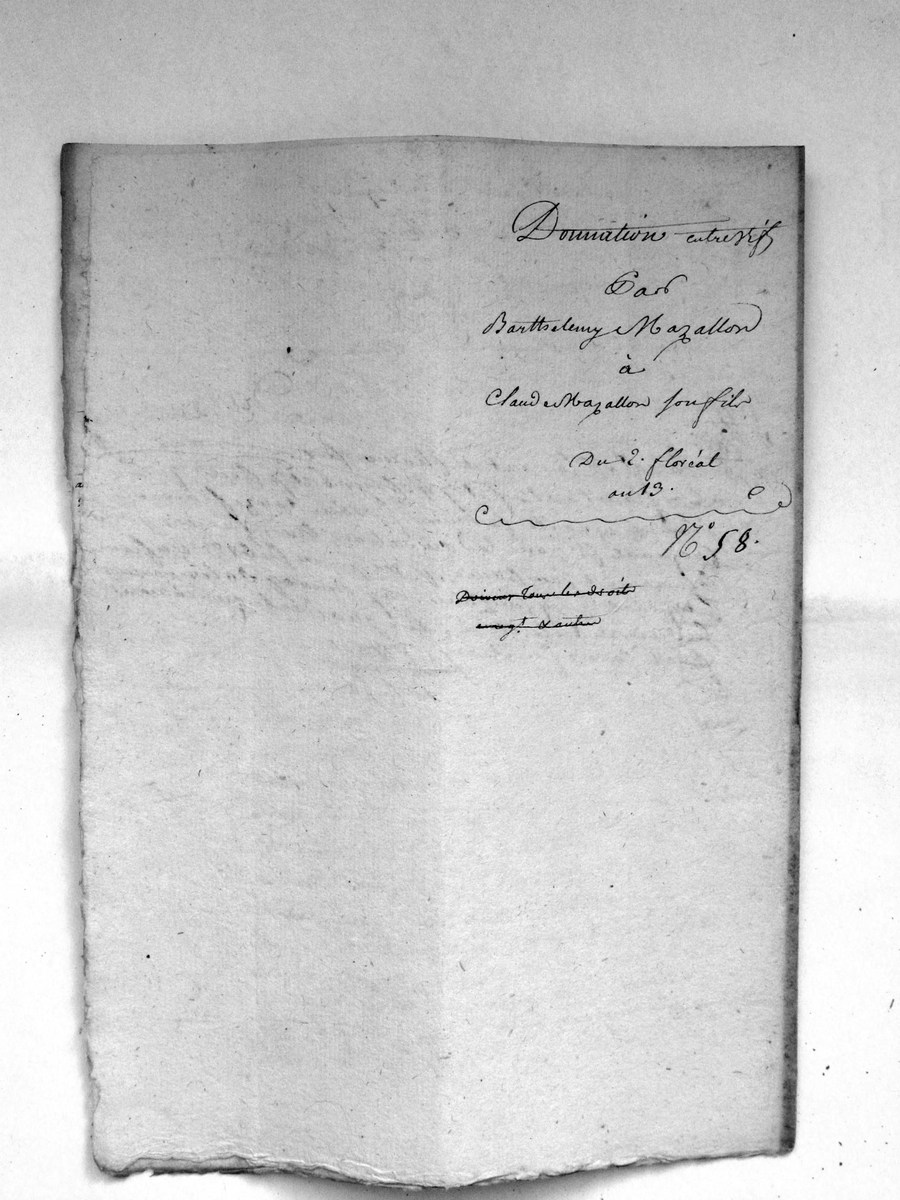 Donnation entre vifs
Par
Barthelemy Mazallon
à
Claude Mazallon son fils
Du 2. floréal
an 13.
N° 58.
Doivent tous les droits
enregt. & autre